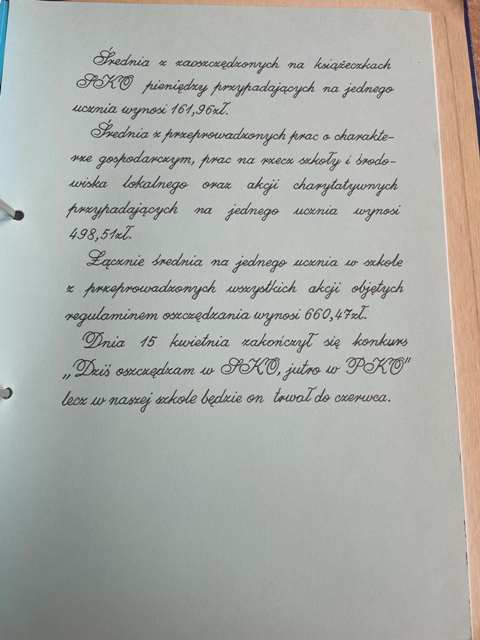 Średnia z zaoszczędzonych na książeczkach
SKO pieniędzy przypadających na jednego
ucznia wynosi 161,96zł.
Średnia z przeprowadzonych prac o charakte-
rze gospodarczym, prac na rzecz szkoły i środo-
wiska lokalnego oraz akcji charytatywnych
przypadających na jednego ucznia wynosi
498,51zł.
Łącznie średnia na jednego ucznia w szkole
z przeprowadzonych wszystkich akcji objętych
regulaminem oszczędzania wynosi 660,47zł.
Dnia 15 kwietnia zakończył się konkurs
„Dziś oszczędzam w SKO, jutro w PKO”
lecz w naszej szkole będzie on trwał do czerwca.